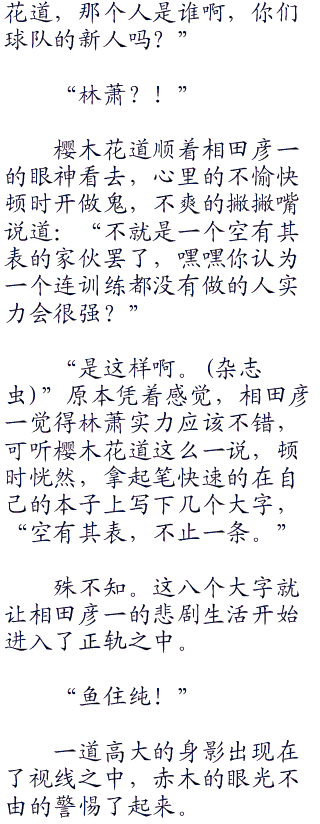 花道，那个人是谁啊，你们
球队的新人吗？”
“林萧？！”
樱木花道顺着相田彦一
的眼神看去，心里的不愉快
顿时开做鬼，不爽的撇撇嘴
说道：“不就是一个空有其
表的家伙罢了，嘿嘿你认为
一个连训练都没有做的人实
力会很强？”
“是这样啊。(杂志
虫)”原本凭着感觉，相田彦
一觉得林萧实力应该不错，
可听樱木花道这么一说，顿
时恍然，拿起笔快速的在自
己的本子上写下几个大字，
“空有其表，不止一条。”
殊不知。这八个大字就
让相田彦一的悲剧生活开始
进入了正轨之中。
“鱼住纯！”
一道高大的身影出现在
了视线之中，赤木的眼光不
由的警惕了起来。